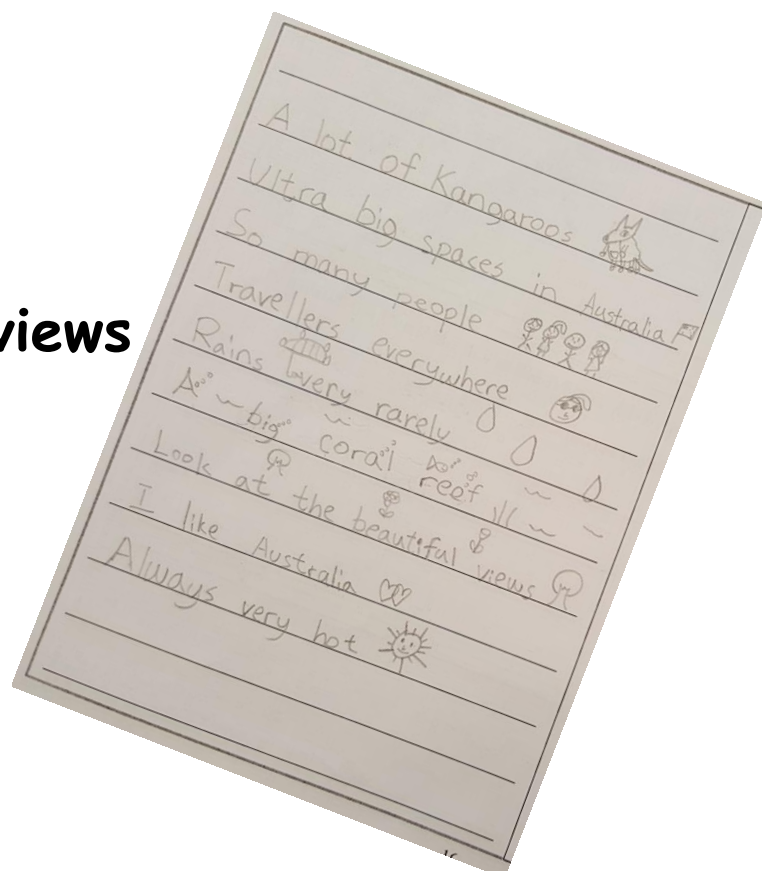 views
A lot of Kangaroos
Ultra big spaces in Australia
So many people
Travellers everywhere
Rains very rarely
A big coral reef
Look at the beautiful views
I like Australia
Always very hot